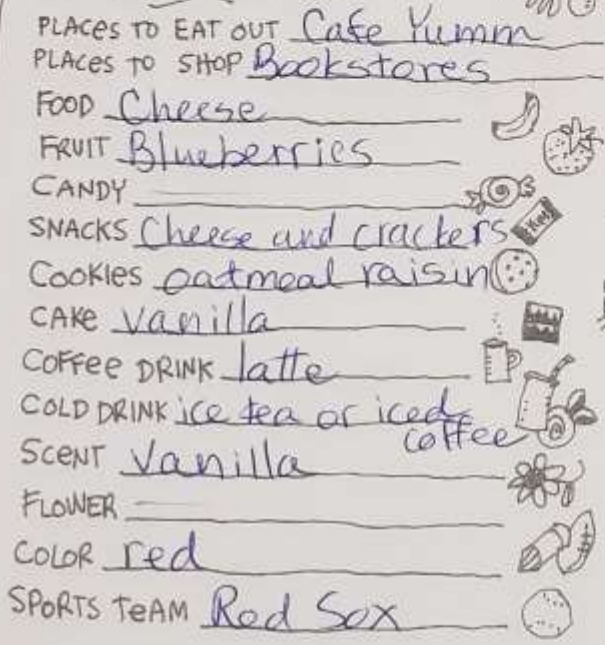 PLACES TO EAT OUT Cafe Yumm
PLACES TO SHOP Bookstores
FOOD Cheese
FRUIT Blueberries
CANDY
SNACKS Cheese and crackers
COOKIES oatmeal raisin
CAKE vanilla
COFFEE DRINK latte
COLD DRINK ice tea or iced
coffee
SCENT Vanilla
FLOWER
COLOR red
SPORTS TEAM Red Sox